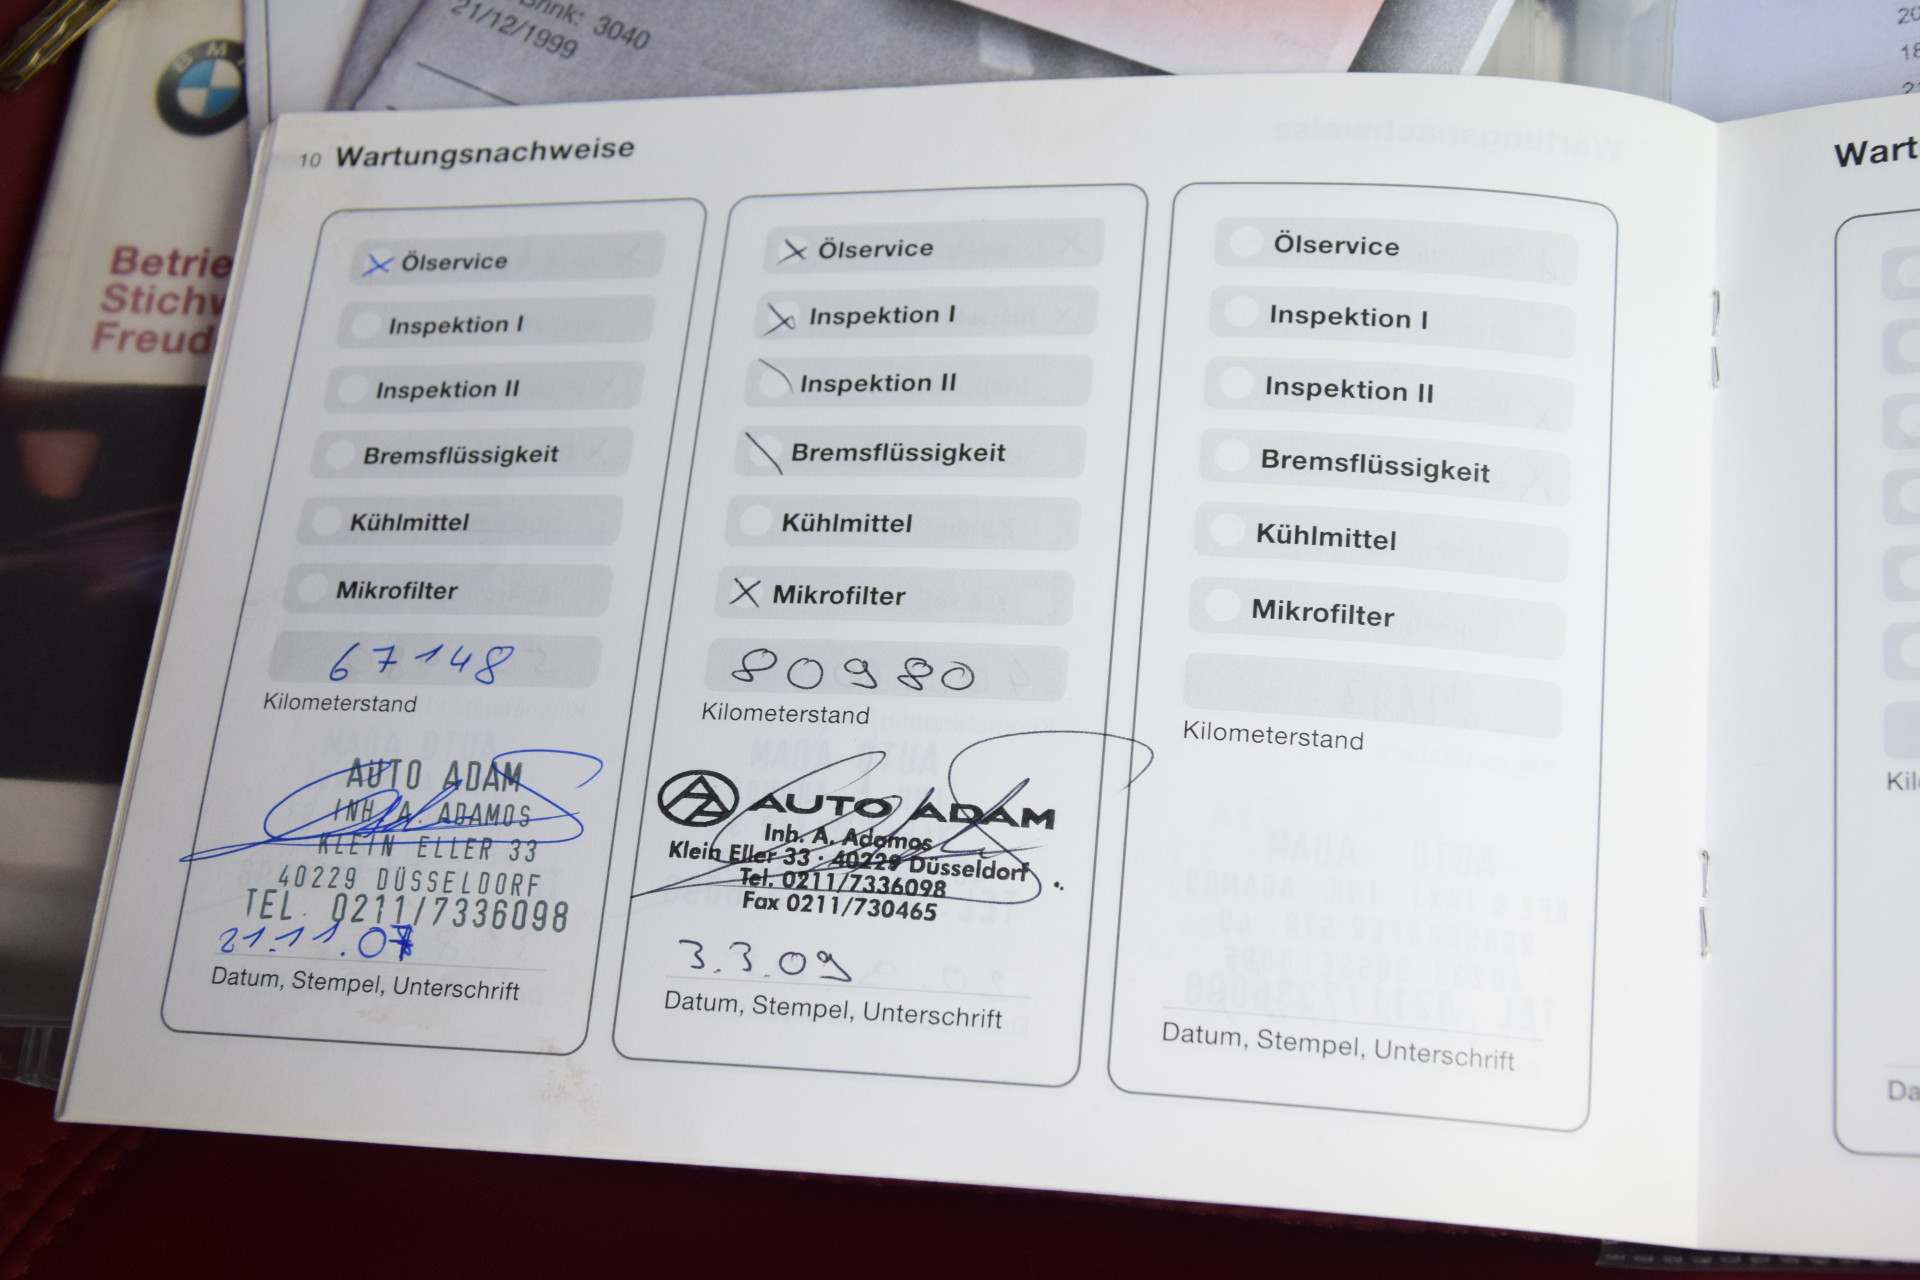 BMW
Betrie
Stichw
Freud
Brink: 3040
21/12/1999
10 Wartungsnachweise
Ölservice
Inspektion I
Inspektion II
Bremsflüssigkeit
Kühlmittel
Mikrofilter
67148
Kilometerstand
AUTO ADAM
INH. A. ADAMOS
KLEIN ELLER 33
40229 DÜSSELDORF
TEL. 0211/7336098
21.11.07
Datum, Stempel, Unterschrift
Ölservice
Inspektion I
Inspektion II
Bremsflüssigkeit
Kühlmittel
Mikrofilter
80980
Kilometerstand
AUTO ADAM
Inh. A. Adamos
Klein Eller 33 · 40229 Düsseldorf
Tel. 0211/7336098
Fax 0211/730465
3.3.09
Datum, Stempel, Unterschrift
Ölservice
Inspektion I
Inspektion II
Bremsflüssigkeit
Kühlmittel
Mikrofilter
Kilometerstand
Datum, Stempel, Unterschrift
Wart
Kil
Da
20
18